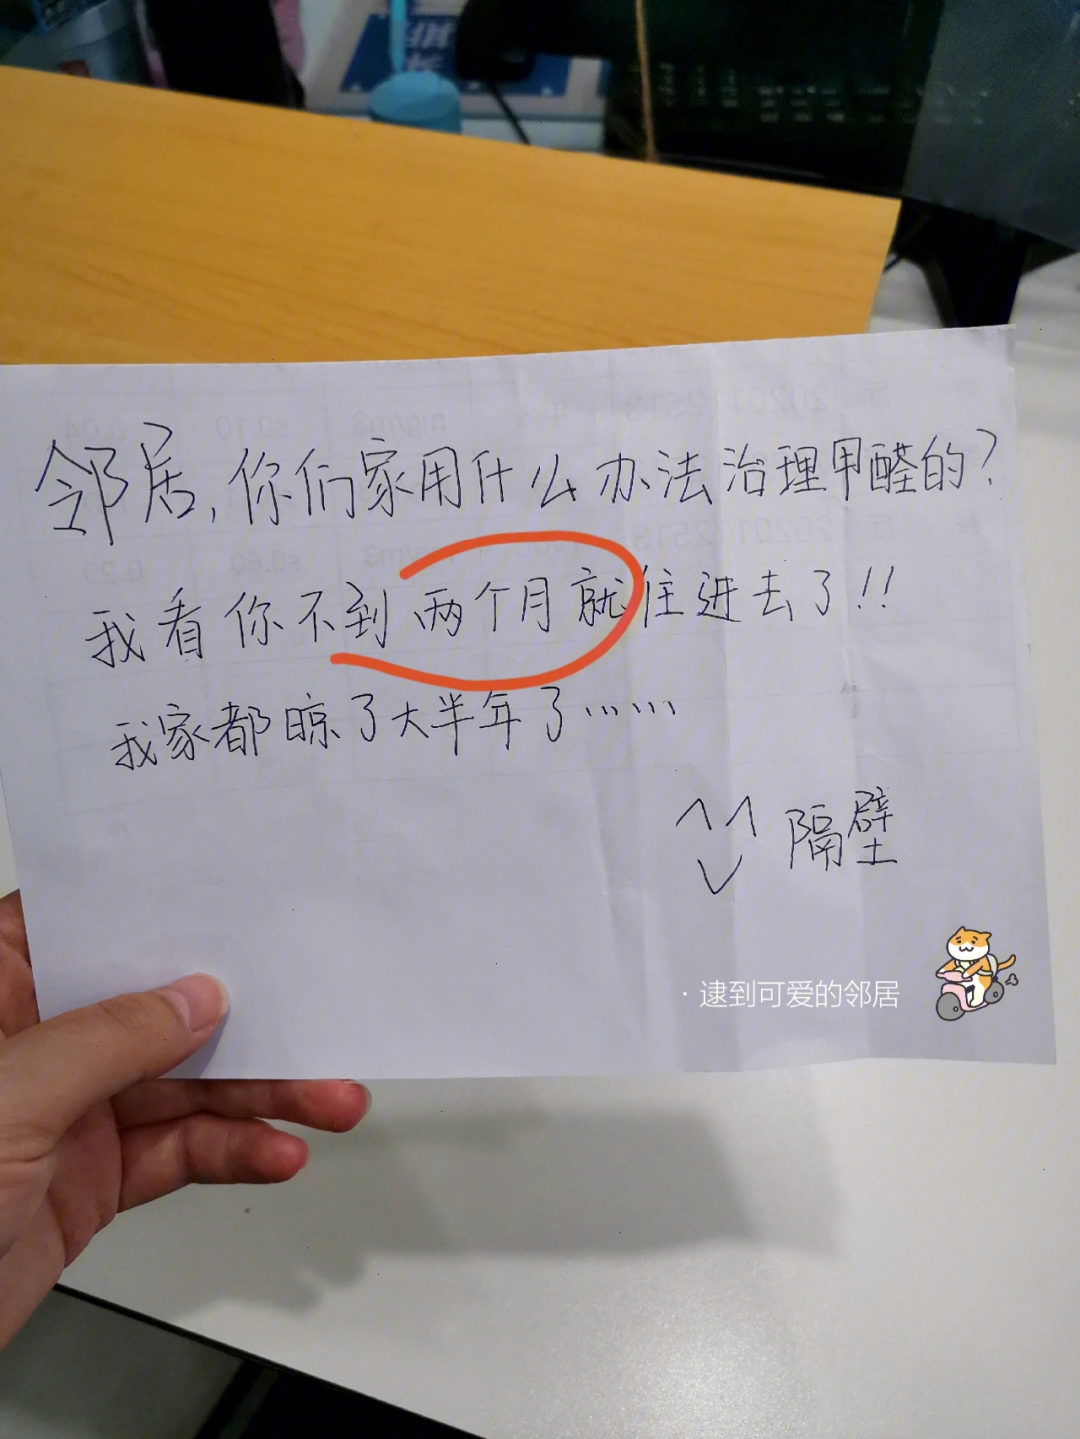 邻居,你们家用什么办法治理甲醛的?
我看你不到两个月就住进去了!!
我家都晾了大半年了……
隔壁
·逮到可爱的邻居